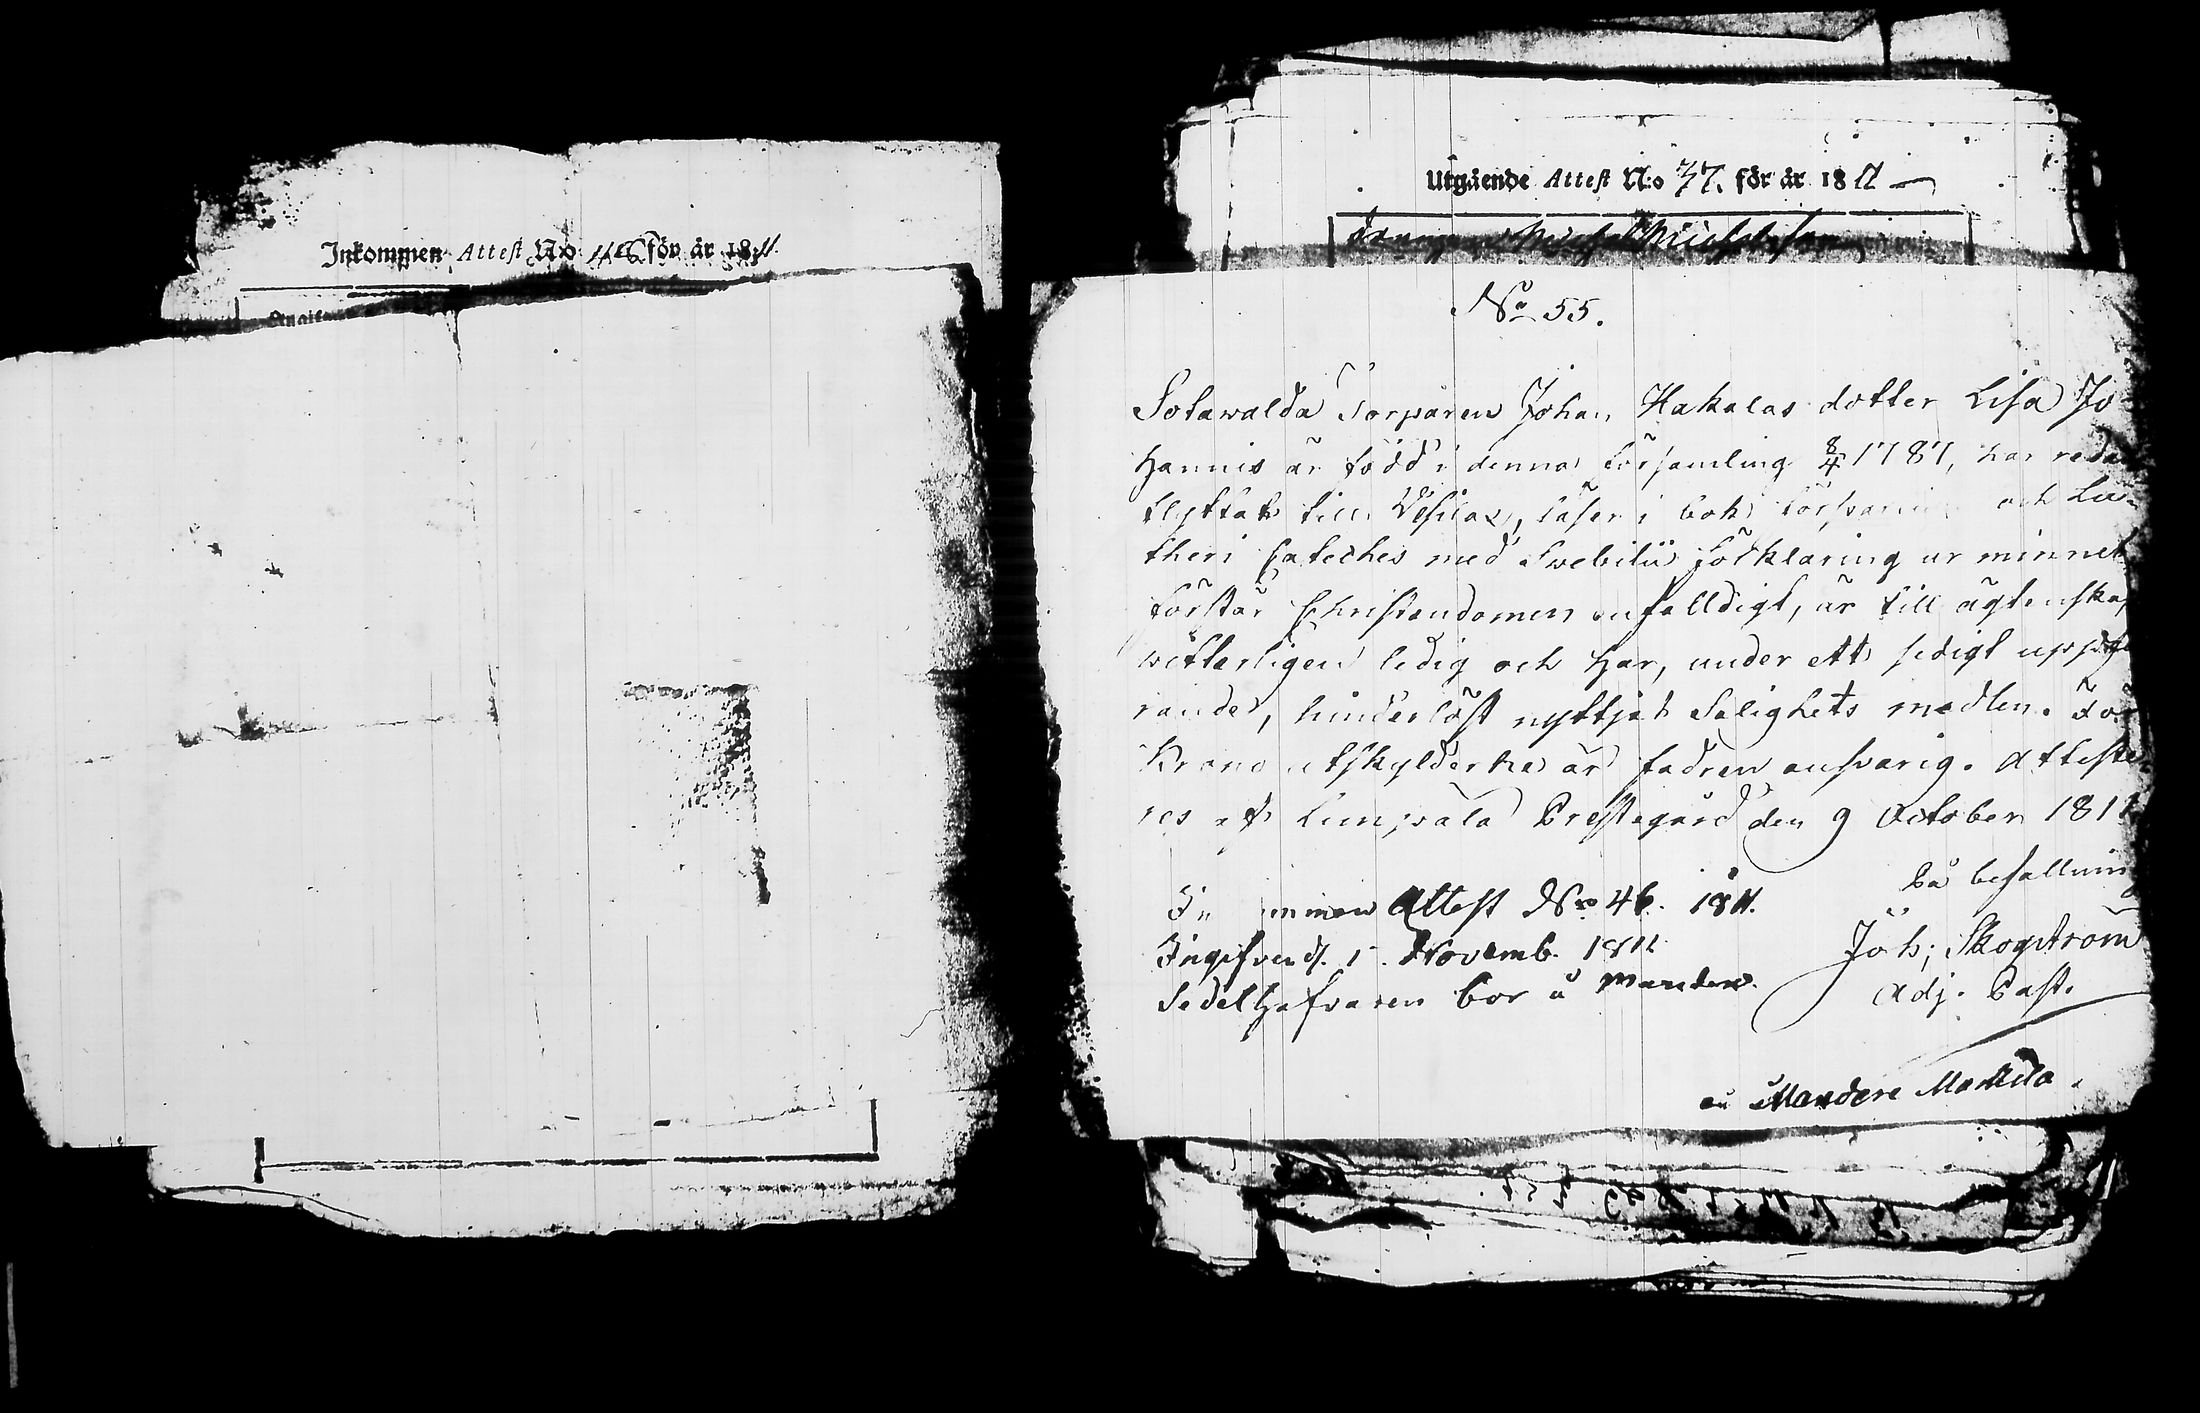 Inkommen Attest N:o 46 för år 1811.
Utgående Attest N:o 37. för år 1811
No 55.
Sotawalda Torparen Johan Hakalas dotter Lisa Jo-
hannis är född i denna Församling 8/4 1787, har redan
flyttat till Vesilax, läser i bok försvarligen och Lu-
theri Cateches med Swebilii Förklaring ur minnet
förstår Christendomen enfalldigt, är till ägtenskap
witterligen ledig och har, under ett sedigt uppfö-
rande, hinderlöst nyttjat Salighets medlen. För
Krono utskylderne är fadren ansvarig. Atteste-
res af Lempälä Prestegård den 9 October 1811
På befallning
Joh; Skogström
Adj. Past.
In mmen Attest No 46. 1811.
Ingifven d. 1 Novemb. 1811
Sedelhafvaren bor å
Mandere Mattila.